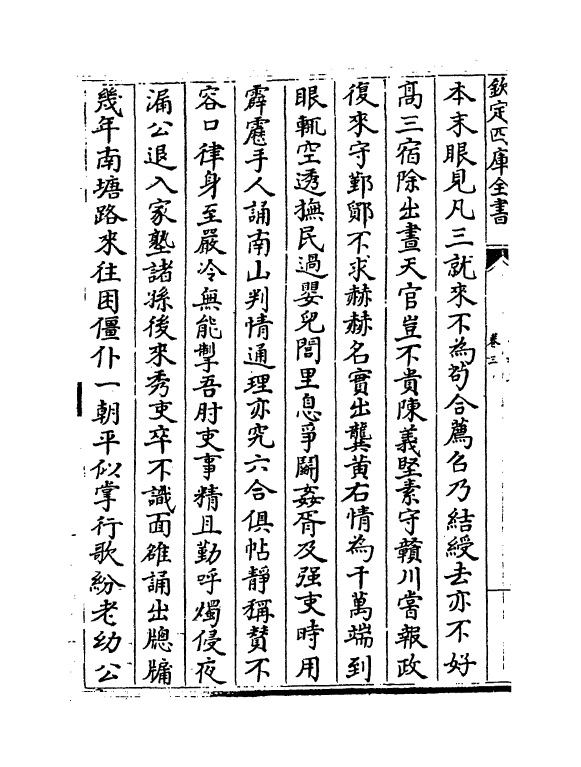 欽定四庫全書
卷三
本末眼見凡三就來不為茍合薦召乃結綬去亦不好
髙三宿除出晝天官豈不貴陳義堅素守贛川嘗報政
復來守鄞鄮不求赫赫名實出龔黄右情為千萬端到
眼輒空透撫民過嬰兒閭里息爭鬬姦胥及强吏時用
霹靂手人誦南山判情通理亦究六合俱帖靜稱賛不
容口律身至嚴冷無能掣吾肘吏事精且勤呼燭侵夜
漏公退入家塾諸孫後來秀吏卒不識面雒誦出牎牖
幾年南塘路來往困僵仆一朝平似掌行歌紛老幼公